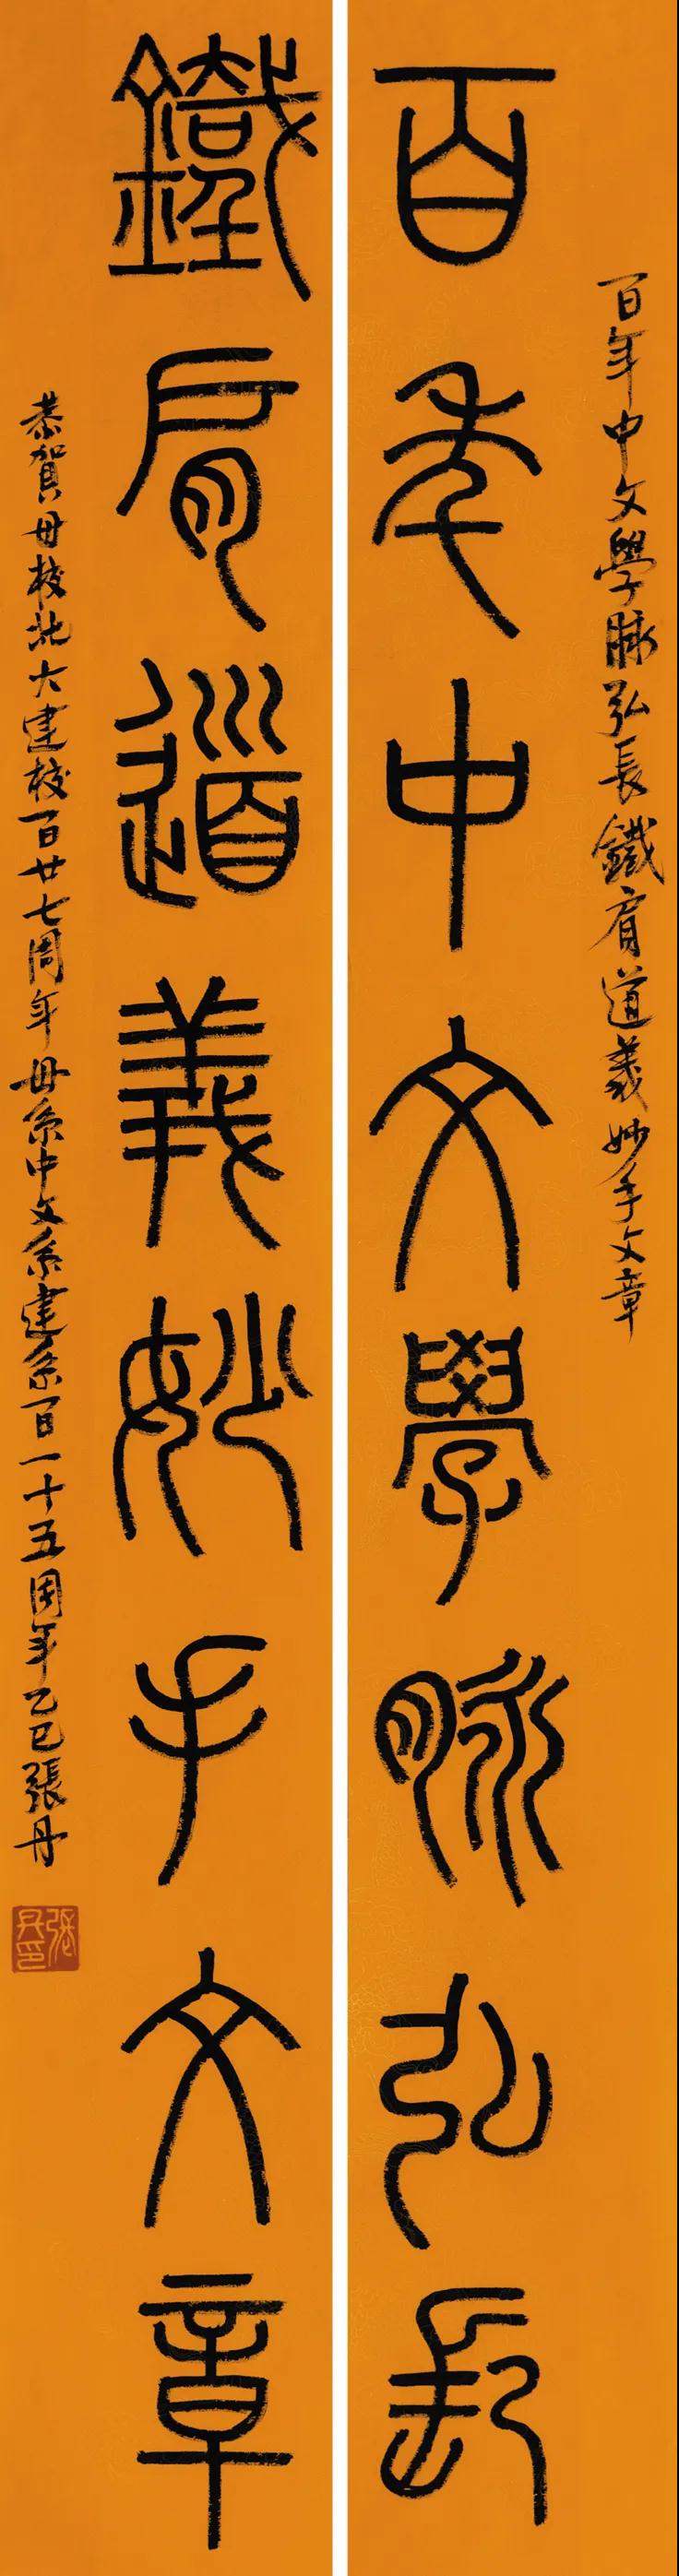 百年中文學脈弘長鐵肩道義妙手文章
百年中文學脈弘長
鐵肩道義妙手文章
恭賀母校北大建校一百廿七周年母系中文系建系一百一十五周年乙巳張丹
張丹印